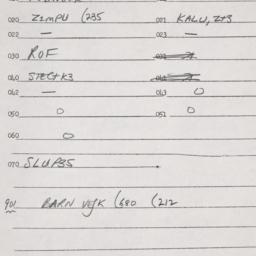 020 ZIMPU (235 021 KALU, Z+3
022 — 023 —
030 ROF
040 STEC+K3
042 — 043 O
050 O 051 O
060 O
070 SLUP35
901 BARN VEJK (680 (212